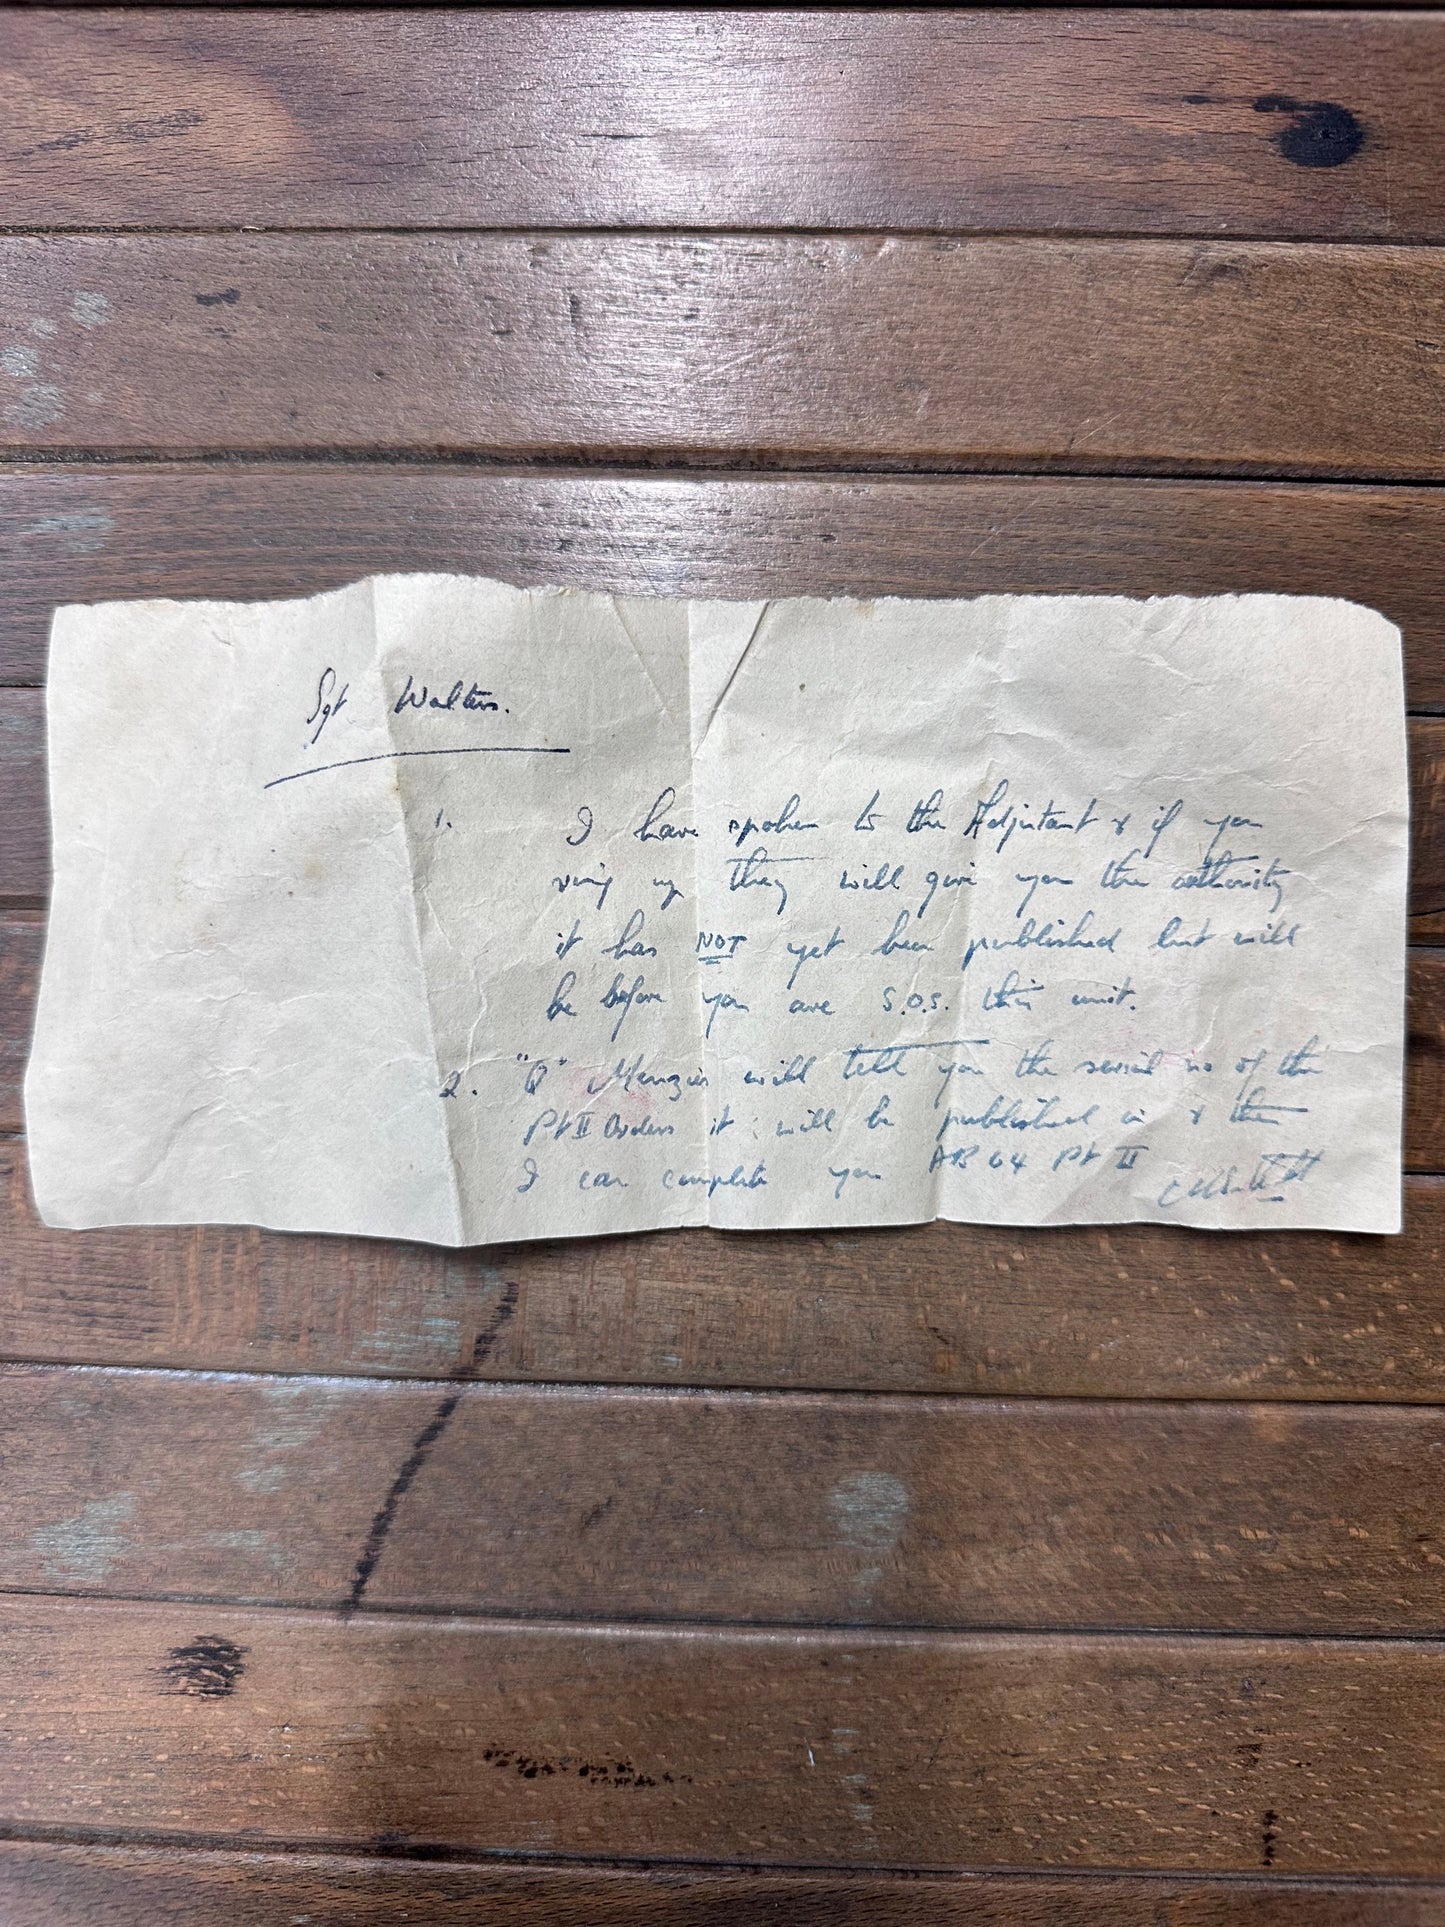 Sgt Walters.
1. I have spoken to the Adjutant & if you
ring up they will give you the authority
it has NOT yet been published but will
be before you are S.O.S. this unit.
2. "Q" Menzies will tell you the serial no of the
Pt II Orders it will be published in & then
I can complete your AB 64 Pt II